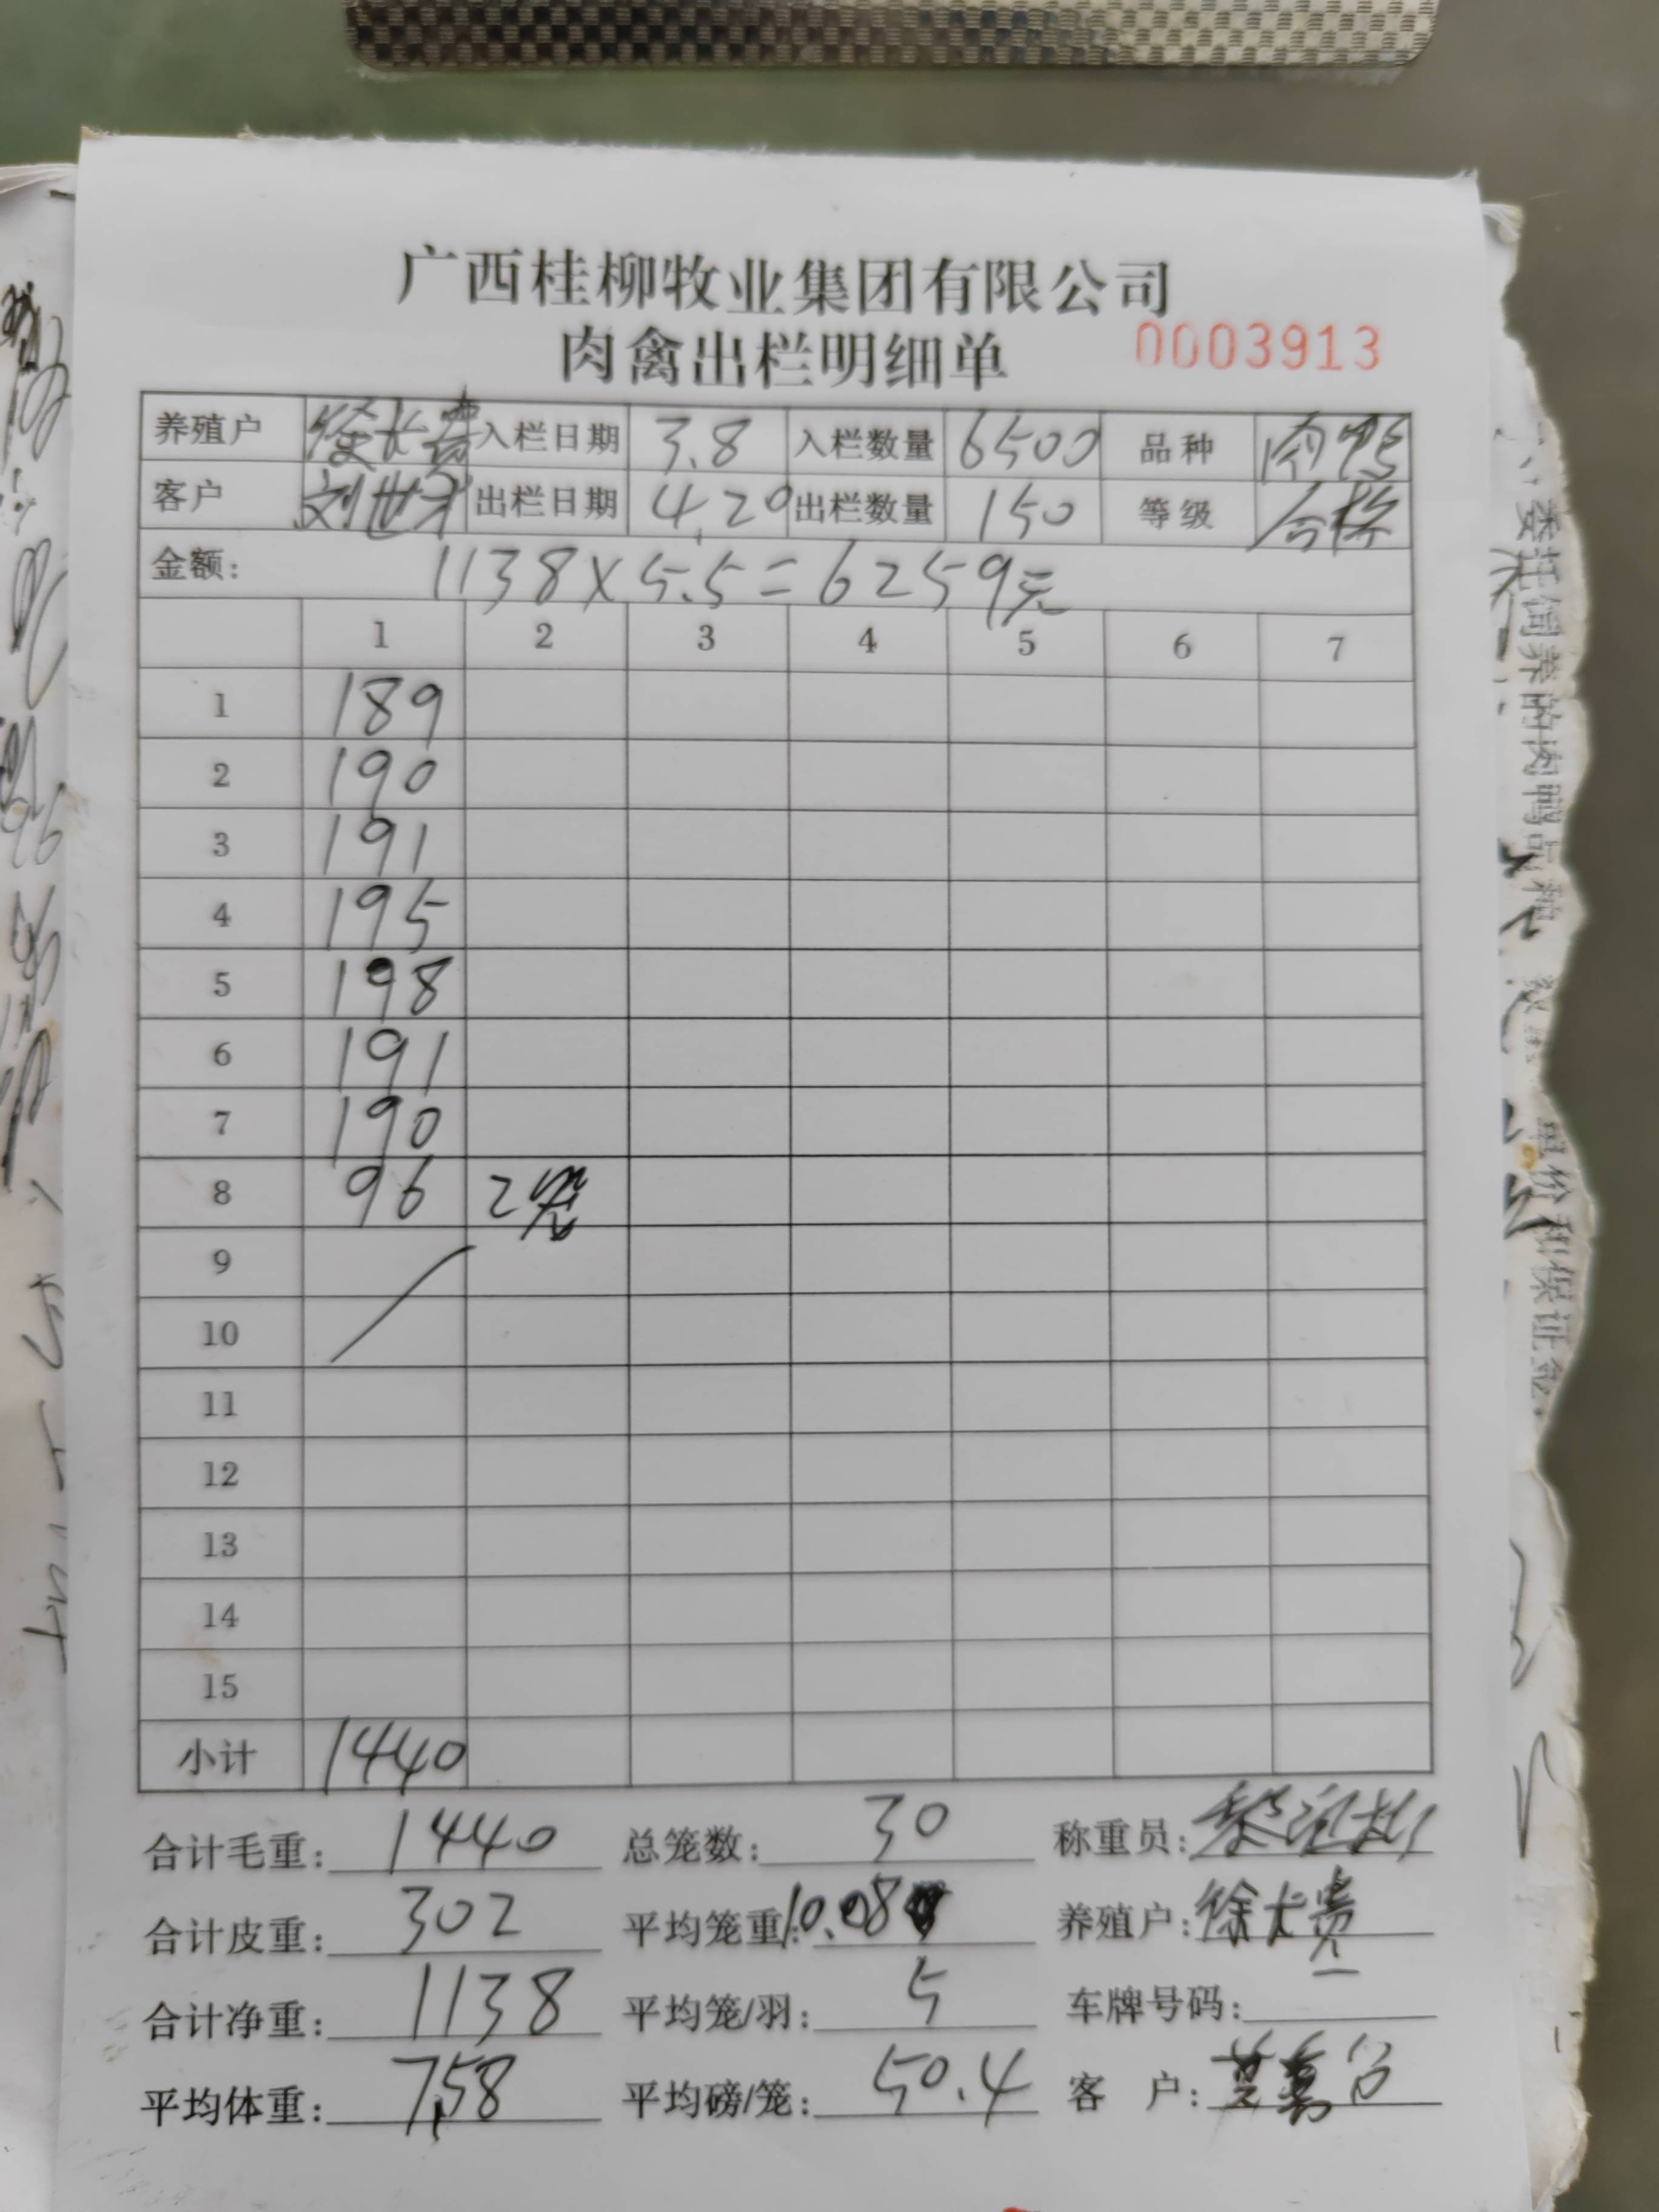 广西桂柳牧业集团有限公司
肉禽出栏明细单 0003913
养殖户 徐长贵 入栏日期 3.8 入栏数量 6500 品种 肉鸭
客户 刘世才 出栏日期 4.20 出栏数量 150 等级 合格
金额: 1138×5.5=6259元
1 2 3 4 5 6 7
1 189
2 190
3 191
4 195
5 198
6 191
7 190
8 96 2笼
9
10
11
12
13
14
15
小计 1440
合计毛重: 1440 总笼数: 30 称重员:
合计皮重: 302 平均笼重: 10.08 养殖户: 徐长贵
合计净重: 1138 平均笼/羽: 5 车牌号码:
平均体重: 7.58 平均磅/笼: 50.4 客 户:
委托饲养的肉鸭品种
单价和保证金